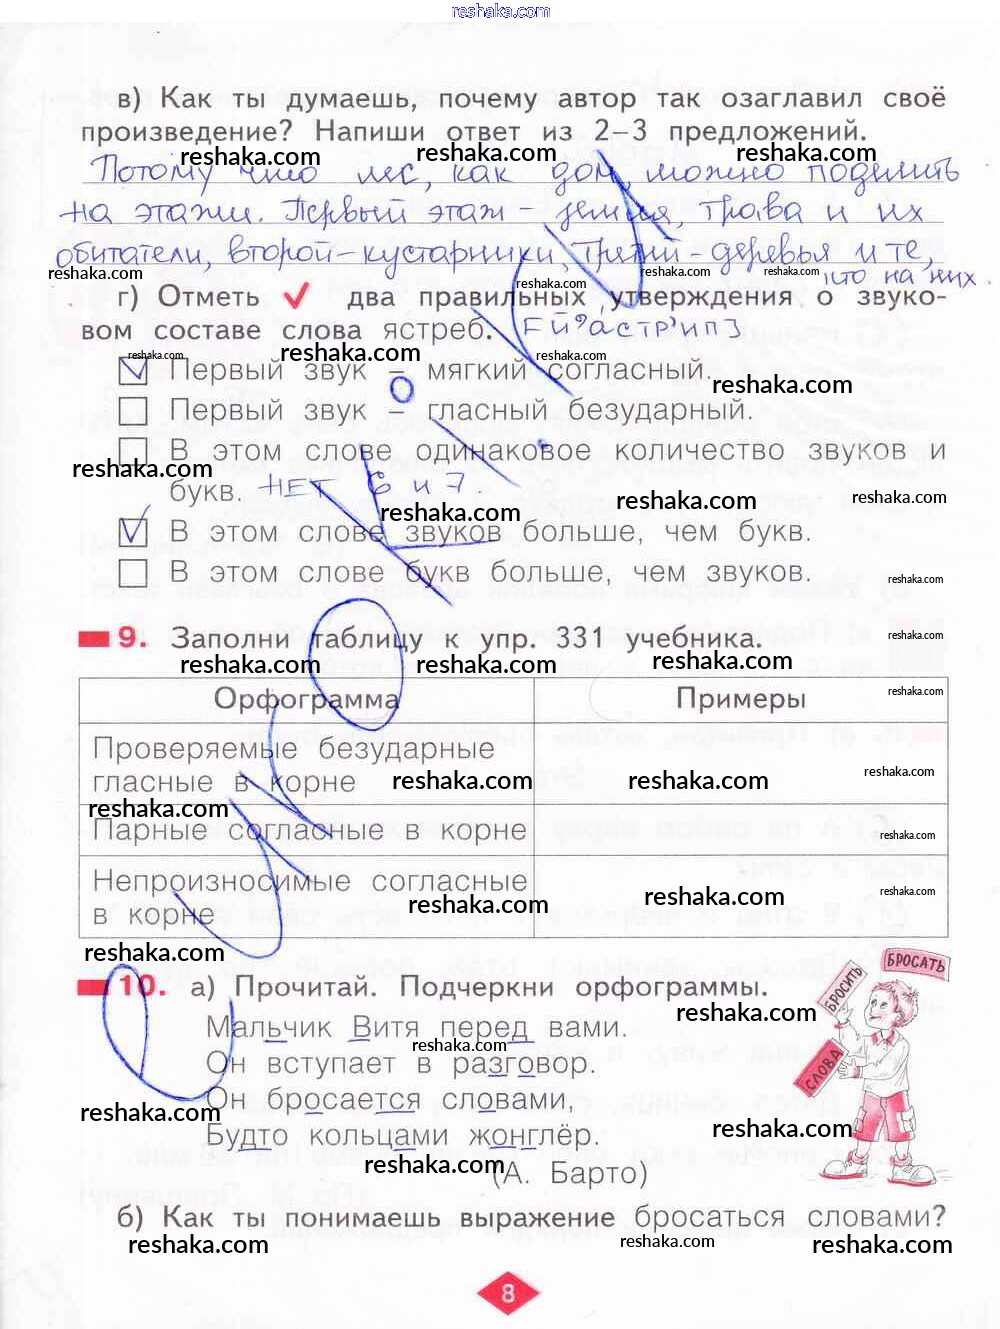 reshaka.com
в) Как ты думаешь, почему автор так озаглавил своё
произведение? Напиши ответ из 2–3 предложений.
reshaka.com reshaka.com reshaka.com
Потому что лес, как дом, можно поделить
на этажи. Первый этаж – земля, трава и их
обитатели, второй – кустарники, третий – деревья и те,
кто на них.
reshaka.com reshaka.com reshaka.com reshaka.com
г) Отметь ✓ два правильных утверждения о звуко-
вом составе слова ястреб. [й'астр'ип]
reshaka.com reshaka.com reshaka.com
Первый звук – мягкий согласный.
reshaka.com
Первый звук – гласный безударный.
В этом слове одинаковое количество звуков и
букв. нет 6 и 7.
reshaka.com reshaka.com reshaka.com reshaka.com
В этом слове звуков больше, чем букв.
В этом слове букв больше, чем звуков.
reshaka.com
9. Заполни таблицу к упр. 331 учебника.
reshaka.com reshaka.com reshaka.com reshaka.com
Орфограмма Примеры
reshaka.com
Проверяемые безударные
гласные в корне
reshaka.com reshaka.com reshaka.com reshaka.com
Парные согласные в корне
reshaka.com
Непроизносимые согласные
в корне
reshaka.com reshaka.com reshaka.com
reshaka.com
БРОСИТЬ
БРОСАТЬ
СЛОВА
10. а) Прочитай. Подчеркни орфограммы.
reshaka.com
Мальчик Витя перед вами.
reshaka.com
Он вступает в разговор.
Он бросается словами,
reshaka.com
Будто кольцами жонглёр.
reshaka.com reshaka.com
(А. Барто)
б) Как ты понимаешь выражение бросаться словами?
reshaka.com reshaka.com reshaka.com
8